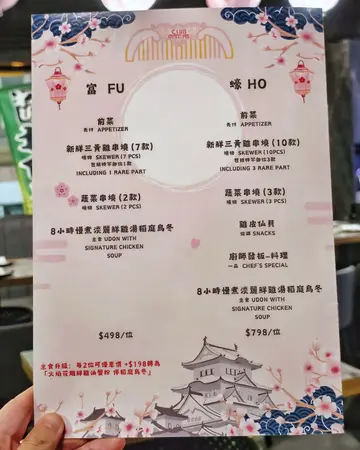 CLUB
富 FU
前菜
先付 APPETIZER
新鮮三黃雞串燒 (7款)
燒物 SKEWER (7 PCS)
包括稀少部位1款
INCLUDING 1 RARE PART
蔬菜串燒 (2款)
燒物 SKEWER (2 PCS)
8小時慢煮淡麗鮮雞湯稻庭烏冬
主食 UDON WITH
SIGNATURE CHICKEN
SOUP
$498/位
蠔 HO
前菜
先付 APPETIZER
新鮮三黃雞串燒 (10款)
燒物 SKEWER (10PCS)
包括稀少部位3款
INCLUDING 3 RARE PART
蔬菜串燒 (3款)
燒物 SKEWER (3 PCS)
雞皮仙貝
SNACKS
廚師發板~料理
一品 CHEF'S SPECIAL
8小時慢煮淡麗鮮雞湯稻庭烏冬
主食 UDON WITH
SIGNATURE CHICKEN
SOUP
$798/位
主食升級: 每2位可優惠價 +$198轉為